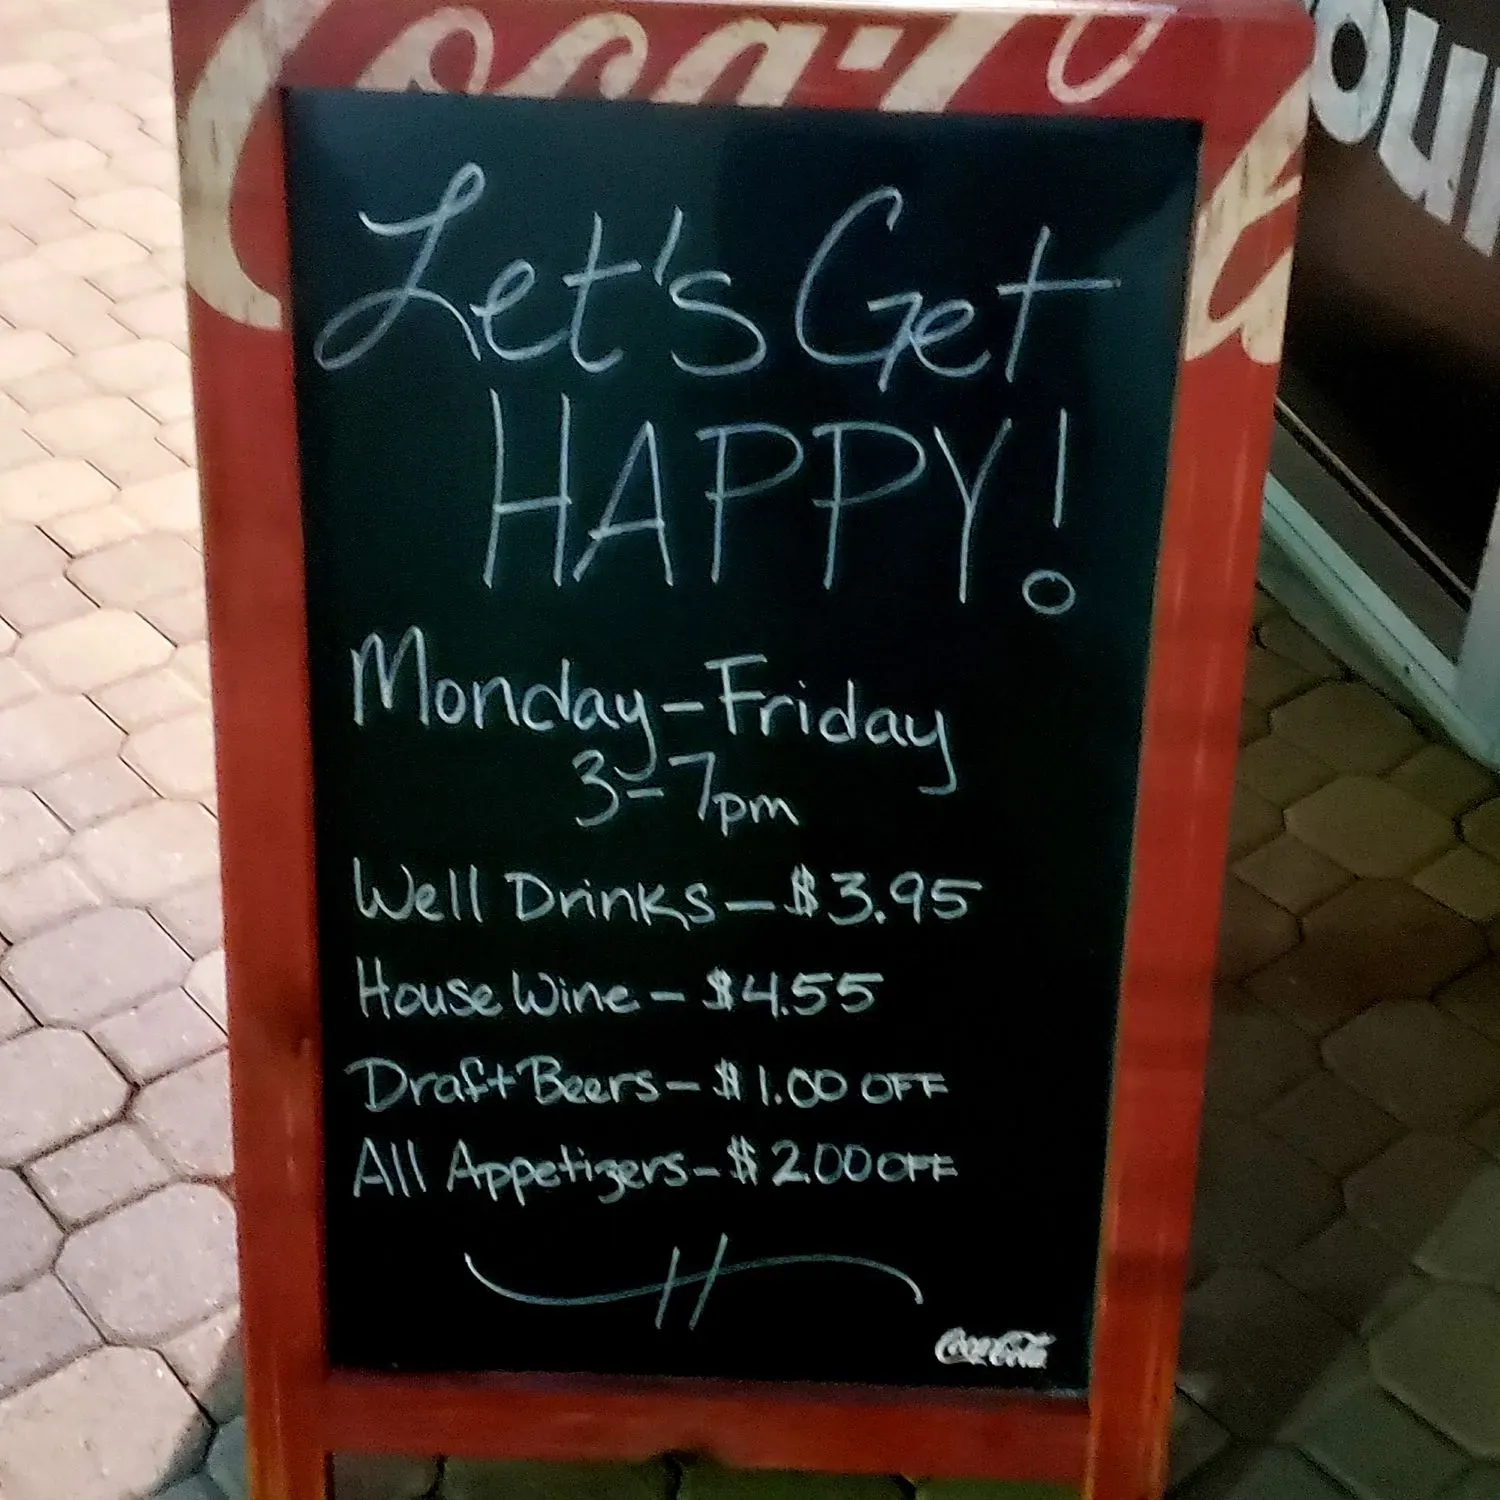 Coca-Cola
Let's Get
HAPPY!
Monday-Friday
3-7pm
Well Drinks - $3.95
House Wine - $4.55
Draft Beers - $1.00 OFF
All Appetizers - $2.00 OFF
Coca-Cola